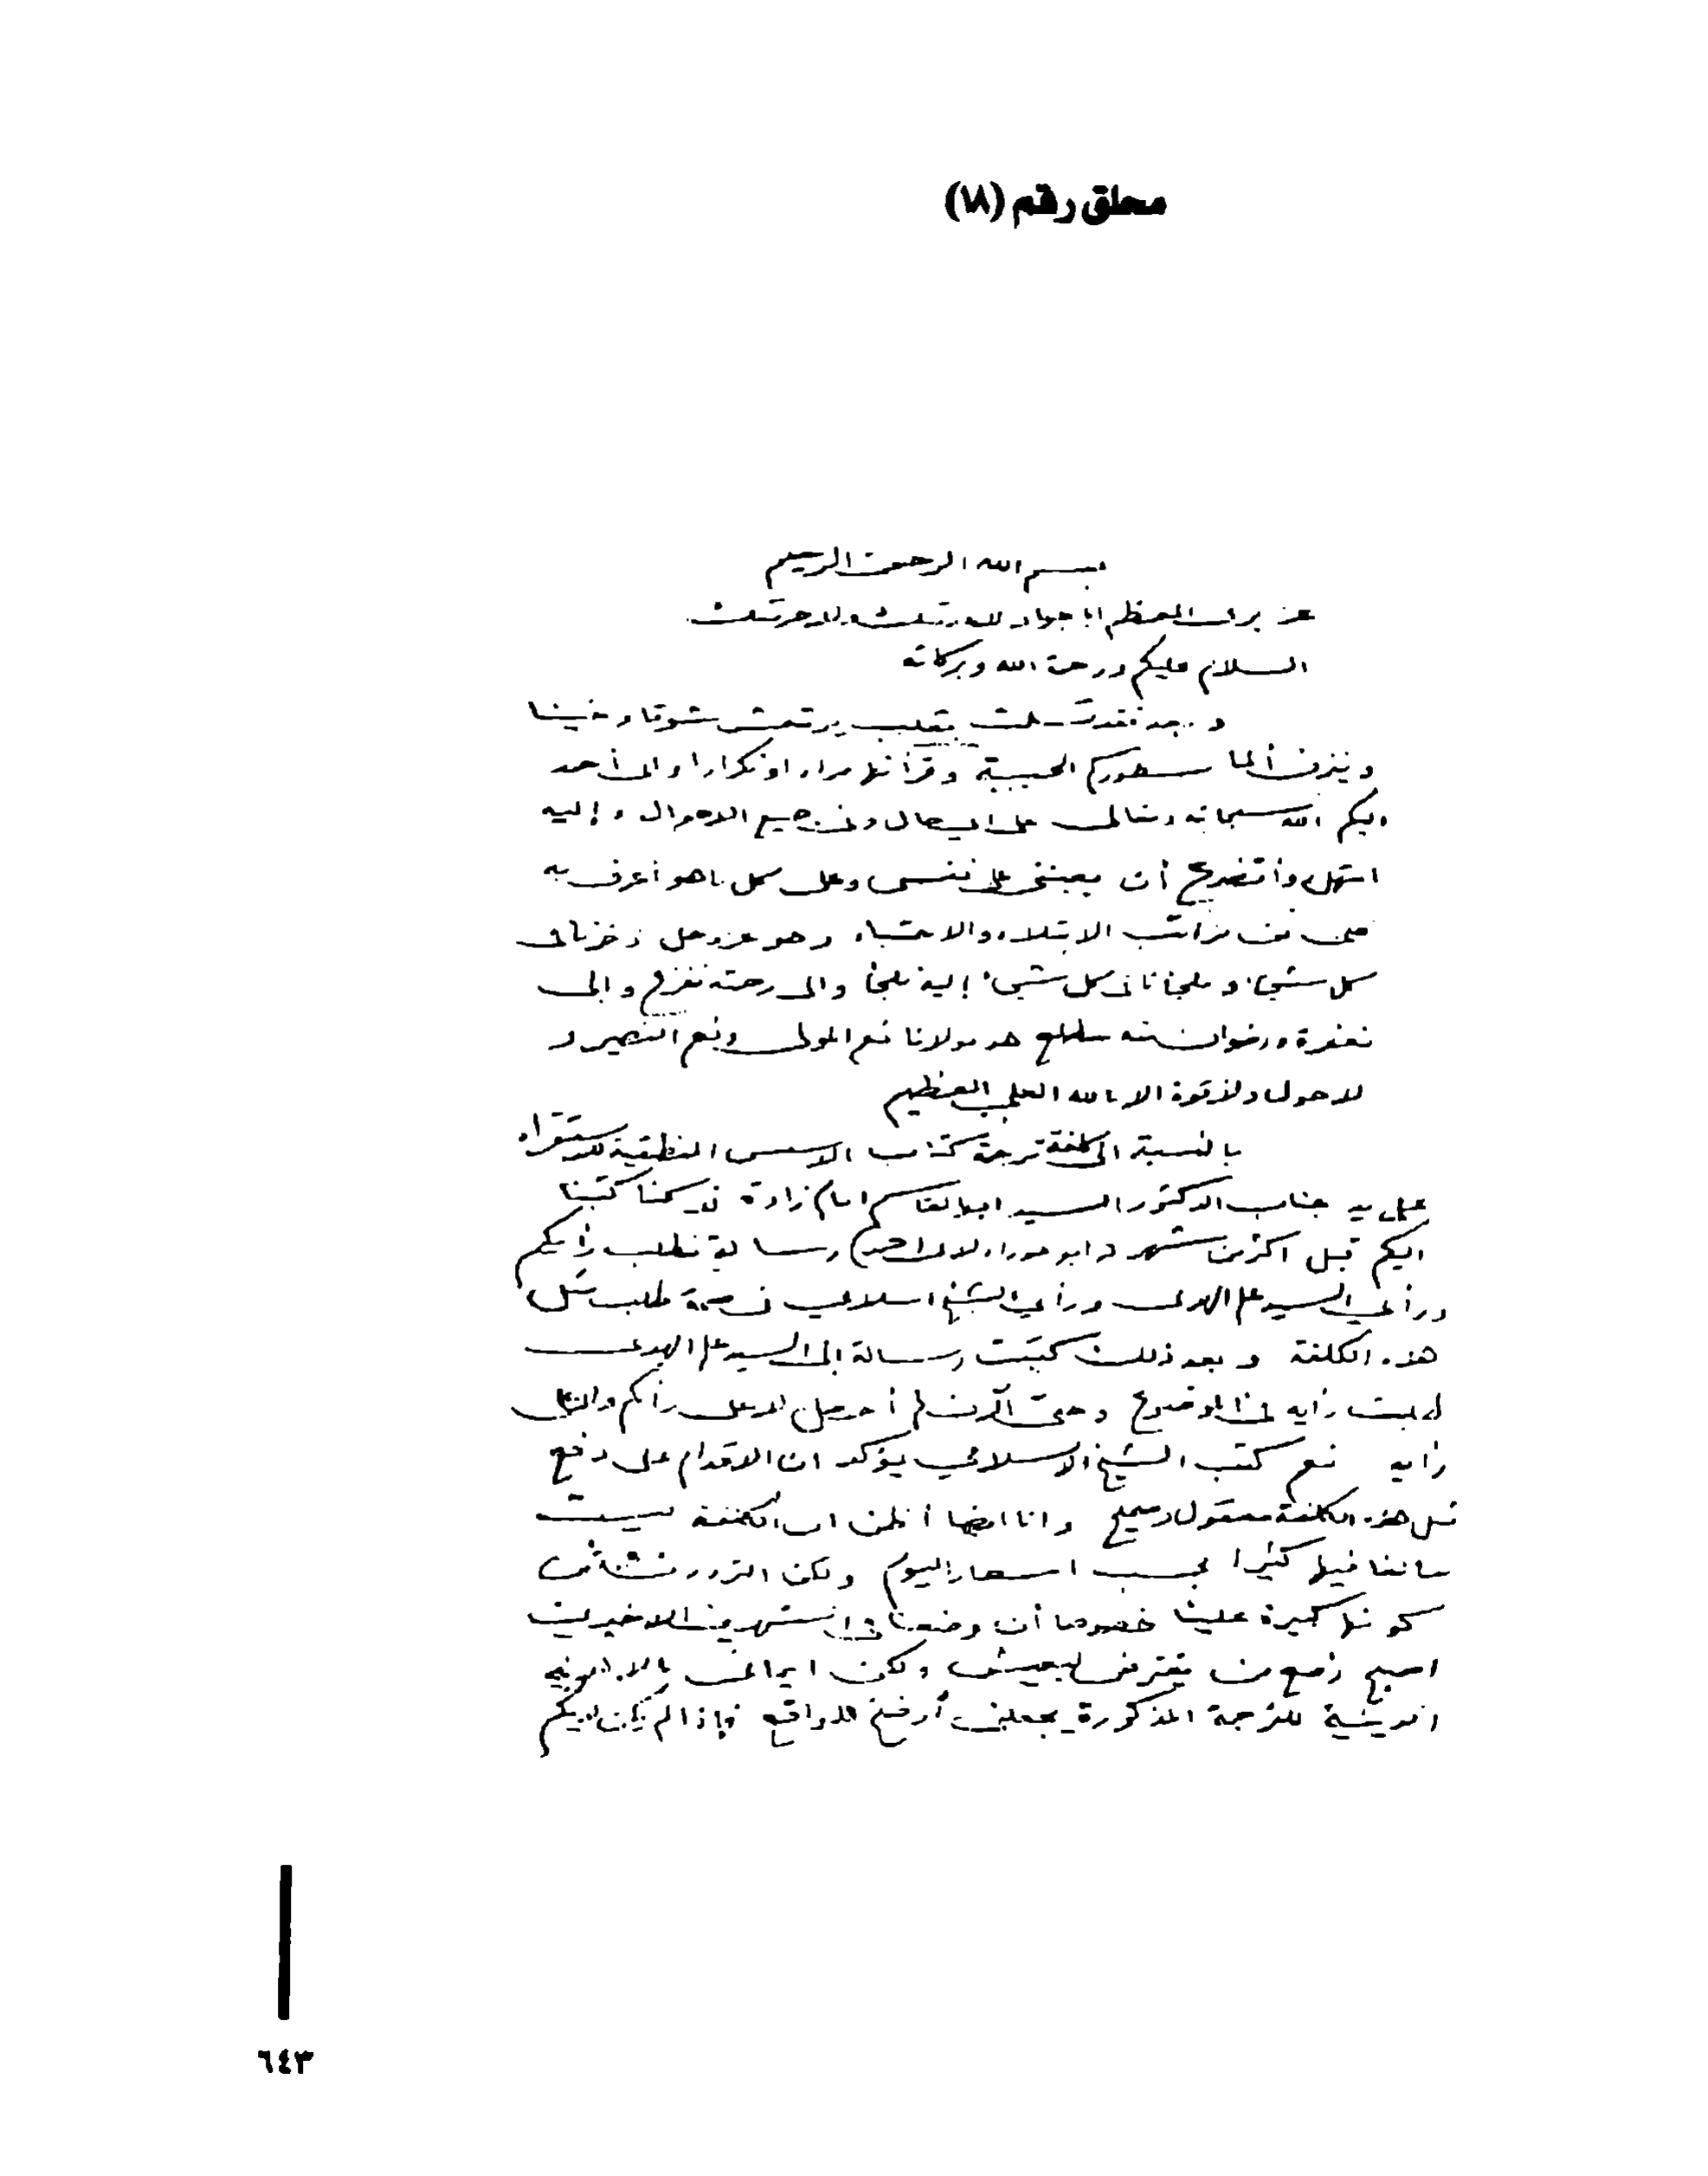 محلق رقم (١٨)
بسم الله الرحمن الرحيم
عزيري المعظم ابا جواد لا عدمتك ولا حرمتك
السلام عليكم ورحمة الله وبركاته
وبعد فقد تسلمت بقلب يرتعش شوقا وحنينا
وينزف ألما سطوركم الحبيبة وقرأتها مرارا وتكرارا واني أحمد
اليكم الله سبحانه وتعالى على اي حال وفي جميع الاحوال وإليه
ابتهل وأتضرع أن يعينني على نفسي وعلى كل ما هو أعرف به
مني من مراتب الابتلاء والاجتباء وهو عز وجل ذخرنا في
كل شيء وملجأنا في كل شيء إليه نلجأ والى رحمته نفزع والى
مغفرة ورضوان منه نتطلع هو مولانا نعم المولى ونعم النصير و
لا حول ولا قوة الا بالله العلي العظيم
بالنسبة الى كلفة ترجمة كتاب الاسس المنطقية للاستقراء
على يد جناب الدكتور السيد ابو القاسم امام زادة قد كنا كتبنا
اليكم قبل اكثر من شهر رسالة نطلب رأيكم
ورأي السيد علي الهدى ورأي الشيخ اسلامي في صحة طلب مثل
هذه الكلفة وبعد ذلك كتبت رسالة إلى السيد علي الهدى
لطلب رأيه في الموضوع وحتى الآن لم أحصل لا على رأيكم ولا على
رأيه نعم كتب الشيخ الاسلامي يؤكد ان الاقدام على دفع
مثل هذه الكلفة معقول وصحيح وانا ايضا أظن ان الكلفة ليست
مبالغا فيها كثيرا بحسب اسعار اليوم ولكن التردد نشأ من
كونها كبيرة علينا خصوصا أن وضعنا في الشهرين الاخيرين
اصبح وضع من يقترض ليعيش ولكن ايماني بالاهمية
للترجمة المذكورة يجعلني أرضخ للواقع فإذا لم يكن لديكم
٦٤٣